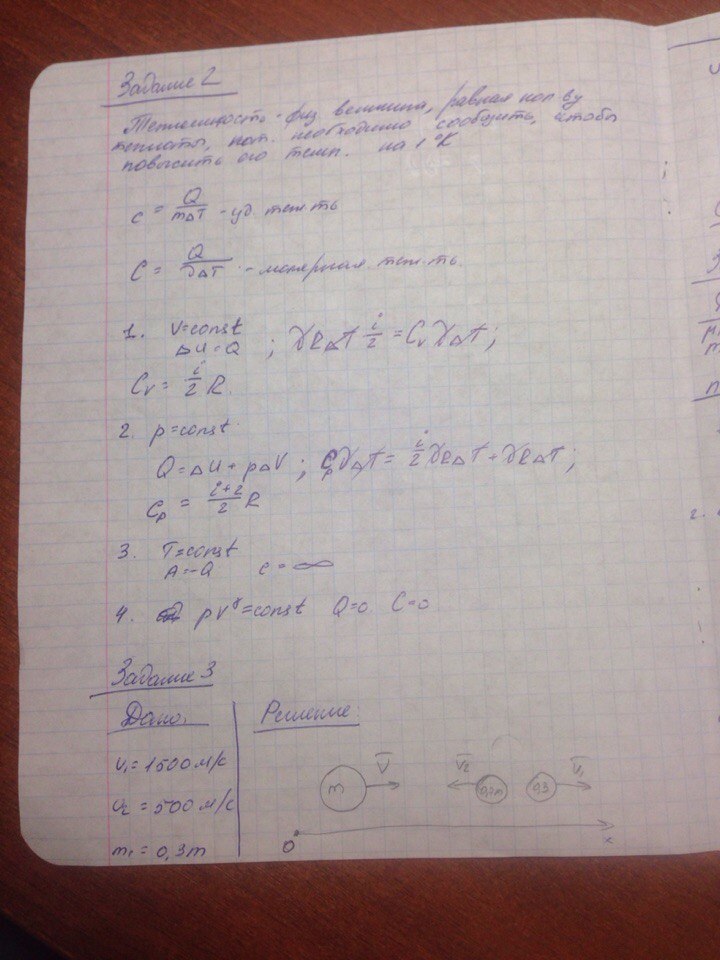 Задание 2
Теплоемкость - физ величина, равная кол-ву
теплоты, кот. необходимо сообщить, чтобы
повысить его темп. на 1°K
c = Q/(mΔT) - уд. теп-ть
C = Q/(νΔT) - молярная теп-ть.
1. V=const
ΔU=Q ; νRΔT i/2 = Cv νΔT;
Cv = i/2 R.
2. p=const.
Q=ΔU+pΔV ; Cp νΔT = i/2 νRΔT + νRΔT;
Cp = (i+2)/2 R
3. T=const
A=-Q c=∞
4. pV^γ=const Q=0 C=0
Задание 3
Дано: Решение:
v₁=1500м/с
v₂=500м/с
m₁=0,3m
m V v₂ 0,7m 0,3 v₁
0 x